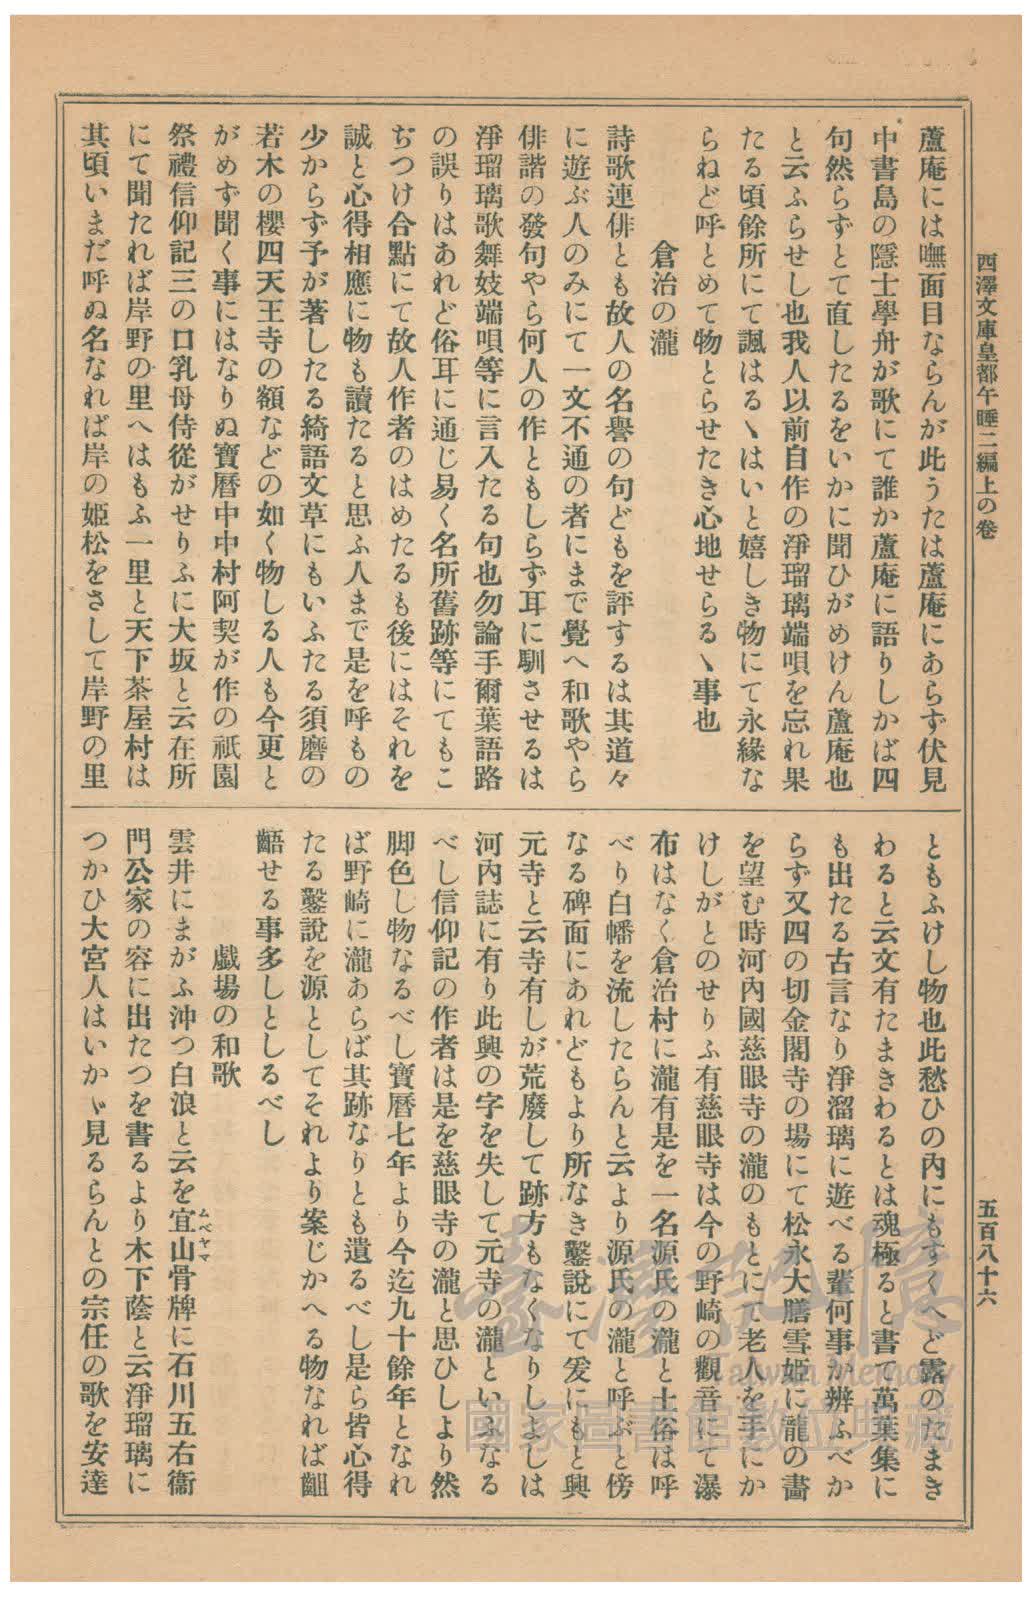 西澤文庫皇都午睡二編上の卷
五百八十六
蘆庵には嘸面目ならんが此うたは蘆庵にあらず伏見
中書島の隱士學舟が歌にて誰か蘆庵に語りしかば四
句然らずとて直したるをいかに聞ひがめけん蘆庵也
と云ふらせし也我人以前自作の淨瑠璃端唄を忘れ果
たる頃餘所にて諷はるヽはいと嬉しき物にて永緣な
らねど呼とめて物とらせたき心地せらるヽ事也
倉治の瀧
詩歌連俳とも故人の名譽の句どもを評するは其道々
に遊ぶ人のみにて一文不通の者にまで覺へ和歌やら
俳諧の發句やら何人の作ともしらず耳に馴させるは
淨瑠璃歌舞妓端唄等に言入たる句也勿論手爾葉語路
の誤りはあれど俗耳に通じ易く名所舊跡等にてもこ
ぢつけ合點にて故人作者のはめたるも後にはそれを
誠と心得相應に物も讀たると思ふ人まで是を呼もの
少からず予が著したる綺語文草にもいふたる須磨の
若木の櫻四天王寺の額などの如く物しる人も今更と
がめず聞く事にはなりぬ寶曆中中村阿契が作の祇園
祭禮信仰記三の口乳母侍從がせりふに大坂と云在所
にて聞たれば岸野の里へはもふ一里と天下茶屋村は
其頃いまだ呼ぬ名なれば岸の姫松をさして岸野の里
ともふけし物也此愁ひの內にもすくへど露のたまき
わると云文有たまきわるとは魂極ると書て萬葉集に
も出たる古言なり淨溜璃に遊べる輩何事か辨ふべか
らず又四の切金閣寺の場にて松永大膳雪姫に龍の畵
を望む時河內國慈眼寺の瀧のもとにて老人を手にか
けしがとのせりふ有慈眼寺は今の野崎の觀音にて瀑
布はなく倉治村に瀧有是を一名源氏の瀧と土俗は呼
べり白幡を流したらんと云より源氏の瀧と呼ぶと傍
なる碑面にあれどもより所なき鑿說にて爰にもと興
元寺と云寺有しが荒廢して跡方もなくなりしよしは
河內誌に有り此興の字を失して元寺の瀧といふなる
べし信仰記の作者は是を慈眼寺の瀧と思ひしより然
脚色し物なるべし寶曆七年より今迄九十餘年となれ
ば野崎に瀧あらば其跡なりとも遺るべし是ら皆心得
たる鑿說を源としてそれより案じかへる物なれば齟
齬せる事多しとしるべし
戲場の和歌
雲井にまがふ沖つ白浪と云を宜山骨牌に石川五右衞
ムベヤマ
門公家の容に出たつを書るより木下蔭と云淨瑠璃に
つかひ大宮人はいかヾ見るらんとの宗任の歌を安達
臺灣記憶
Taiwan Memory
國家圖書館數位典藏